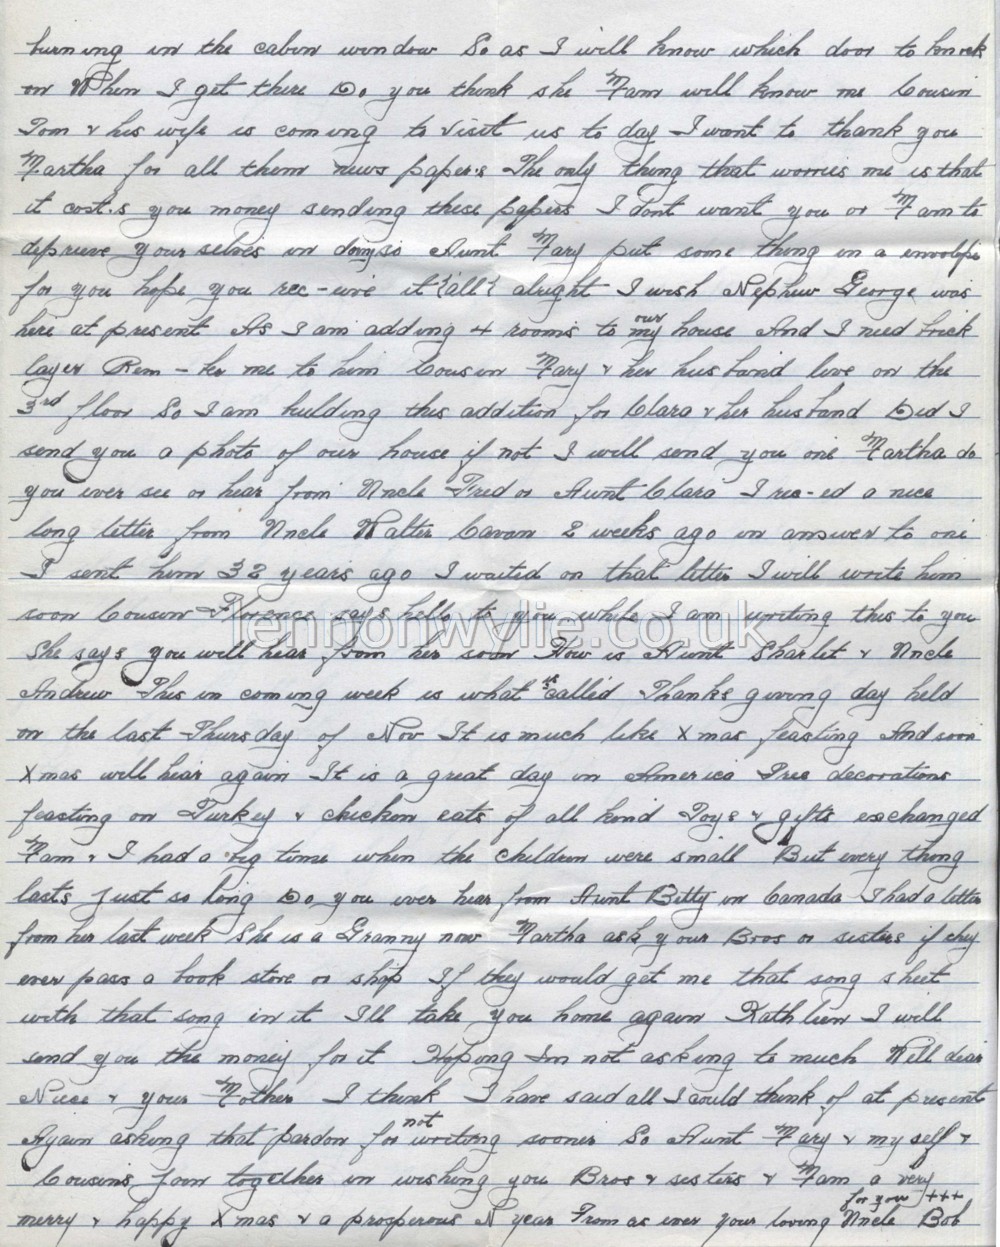 burning in the cabin window So as I will know which door to knock
on When I get there Do you think she Mam will know me Cousin
Tom & his wife is coming to visit us to day I want to thank you
Martha for all them news paper.s The only thing that worries me is that
it cost.s you money sending these papers I dont want you or Mam to
deprieve your selves in doing so Aunt Mary put some thing in a envolope
for you hope you rec-uive it {all} alright I wish Nephew George was
here at present As I am adding 4 rooms to my our house And I need brick
layer Rem-ber me to him Cousin Mary & her husband live on the
3rd floor So I am building this addition for Clara & her husband Did I
send you a photo of our house if not I will send you one Martha do
you ever see or hear from Uncle Fred or Aunt Clara I rec-ed a nice
long letter from Uncle Walter Cavan 2 weeks ago in answer to one
I sent him 32 years ago I waited on that letter I will write him
soon Cousin Florence says hello to you while I am writing this to you
lennonwylie.co.uk
She says you will hear from her soon How is Aunt Sharlet & Uncle
Andrew This in coming week is what is called Thanks giving day held
on the last Thursday of Nov It is much like Xmas feasting And soon
Xmas will hear again It is a great day in America Tree decorations
feasting on Turkey & chicken eats of all kind Toys & gifts exchanged
Mam & I had a big time when the children were small But every thing
lasts just so long Do you ever hear from Aunt Betty in Canada I had a letter
from her last week She is a Granny now Martha ask your Bros or sisters if they
ever pass a book store or shop If they would get me that song sheet
with that song in it I'll take you home again Kathleen I will
send you the money for it Hoping Im not asking to much Well dear
Niece & your Mother I think I have said all I could think of at present
Again asking that pardon for not writing sooner So Aunt Mary & my self &
Cousins join together in wishing you Bros & sisters & Mam a very
merry & happy Xmas & a prosperous N year From as ever your loving Uncle Bob
for you +++